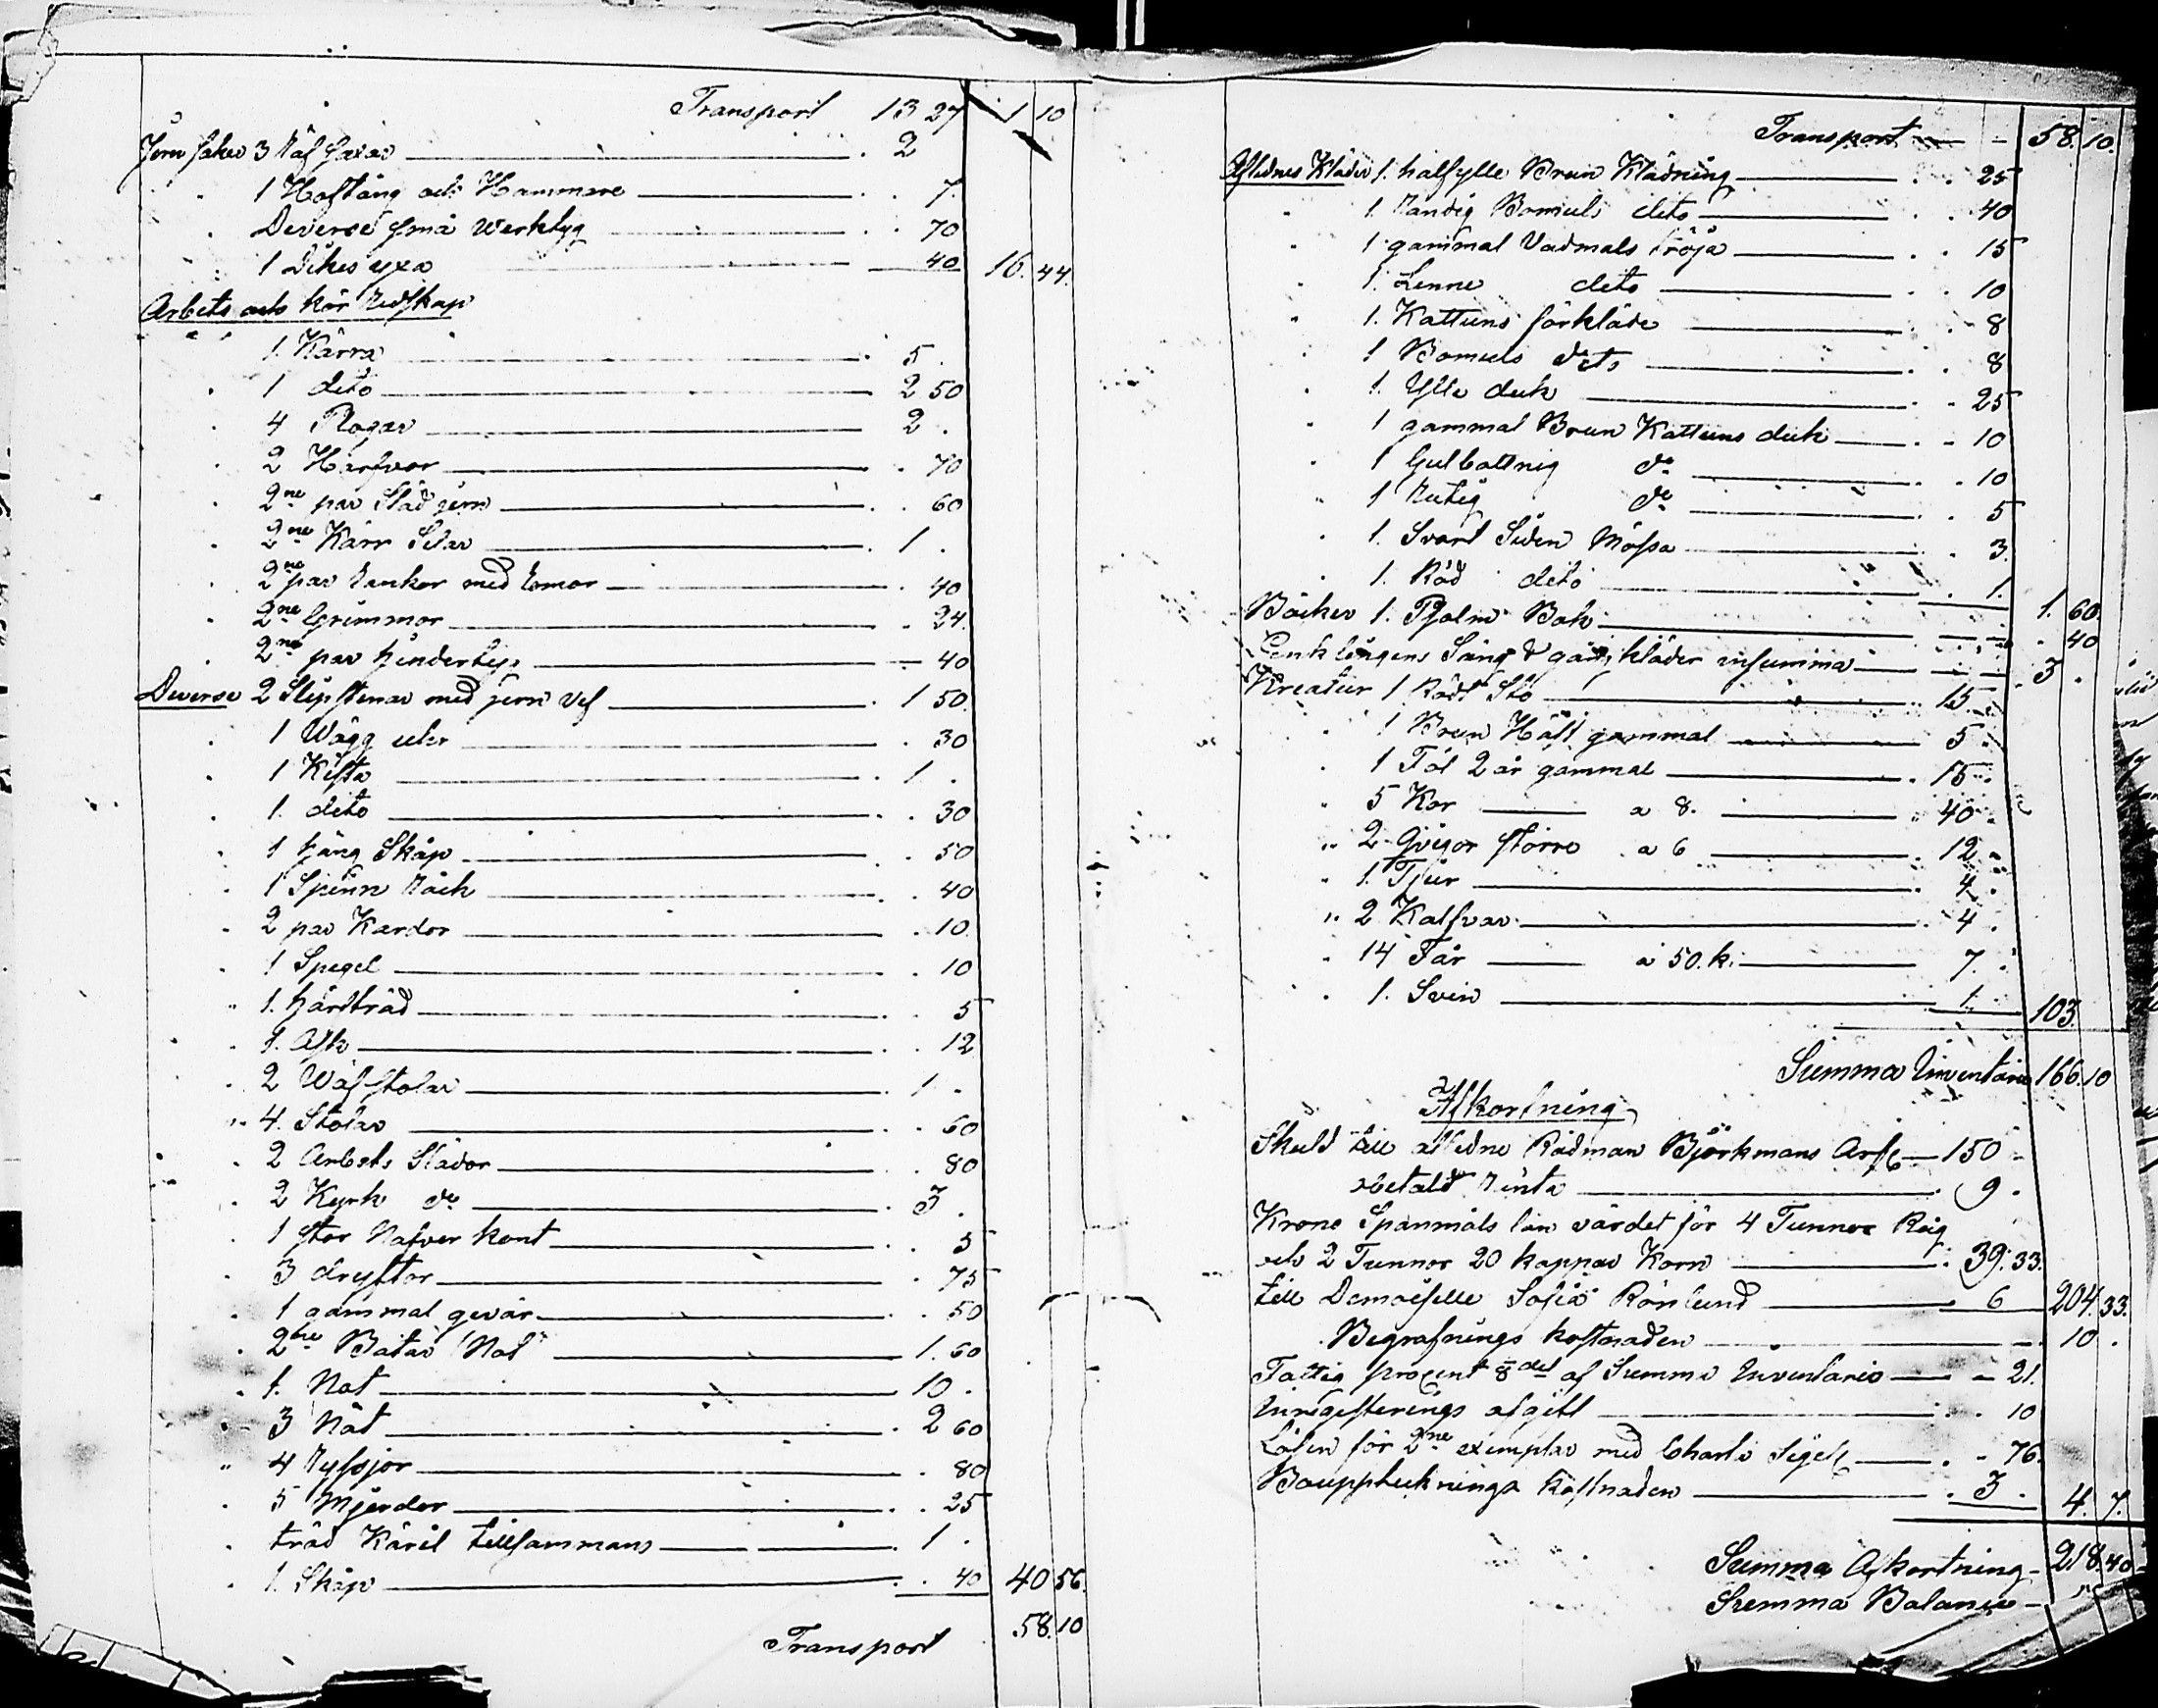 Transport 13 27 1 10
Jern saker 3 Räf saxar 2
1 Hoftång och Hammare 7.
Deverse små Werktyg 70
1 Dikes yxa 40 16. 44.
Arbets och kör Redskap
1. Kärra 5.
1 dito 2 50
4 Plogar 2.
2 Harfvor 70
2ne par Släd jern 60
2ne Kärr Selar 1.
2ne par Rankor med lomor 40
2ne Grimmor 24.
2ne par hindertyg 40
Diverse 2 Slipstenar med jern vef 1 50.
1 Wägg uhr 30
1 Kista 1.
1. dito 30
1 häng Skåp 50
1 Spinn Råck 40
2 par Kardor 10.
1 Spegel 10
1. hårdbräd 5
1. Ask 12
2 Wäfstolar 1.
4. Stolar 60
2 Arbets Slädor 80
2 Kyrk do 3.
1 stor Näfver kont 5
3 dryftor 75
1 gammal gevär 50
2ne Båtar 1. 60
1. Not 10.
3 Nät 2 60
4 Ryssjor 80
5 Mjerdor 25
träd Käril tillsammans 1.
1. Skåp 40 40 56.
Transport 58. 10
Transport 58. 10.
Aflidnes Kläder 1. halfylle Brun Klädning 25
1. Randig Bomuls dito 40
1 gammal Vadmals Tröja 15
1. Linne dito 10
1. Kattuns förkläde 8
1 Bomuls dito 8
1. Ylle duk 25
1 gammal Brun Kattuns duk 10
1 Gulbottnig do 10
1 Rutig do 5
1. Svart Siden Mössa 3.
1. Röd dito 1. 1. 60.
Böcker 1. Psalm Bok 40
Enklingens Säng & gång kläder insumma 3.
Kreatur 1 Rödt Sto 15.
1 Brun Häst gammal 5.
1 Föl 2 år gammal 15.
5 Kor a 8. 40.
2 Qvigor större a 6 12.
1. Tjur 4.
2 Kalfvar 4.
14 Får a 50. k. 7.
1. Svin 1. 103.
Summa Inventarie 166. 10
Afkortning
Skuld till aflidne Rådman Björkmans Arf 150
obetald Ränta 9.
Krono Spanmåls lån värdet för 4 Tunnor Råg
och 2 Tunnor 20 kappar Korn 39. 33.
till Demoiselle Sofia Rönlund 6 204. 33.
Begrafnings kostnaden 10.
Fattig procent 8del af Summa Inventario 21.
Inregisterings afgift 10
Lösen för 2ne exemplar med Charta Sigil 76.
Bouppteknings Kostnaden 3. 4. 7.
Summa Afkortning 218. 40
Summa Balance